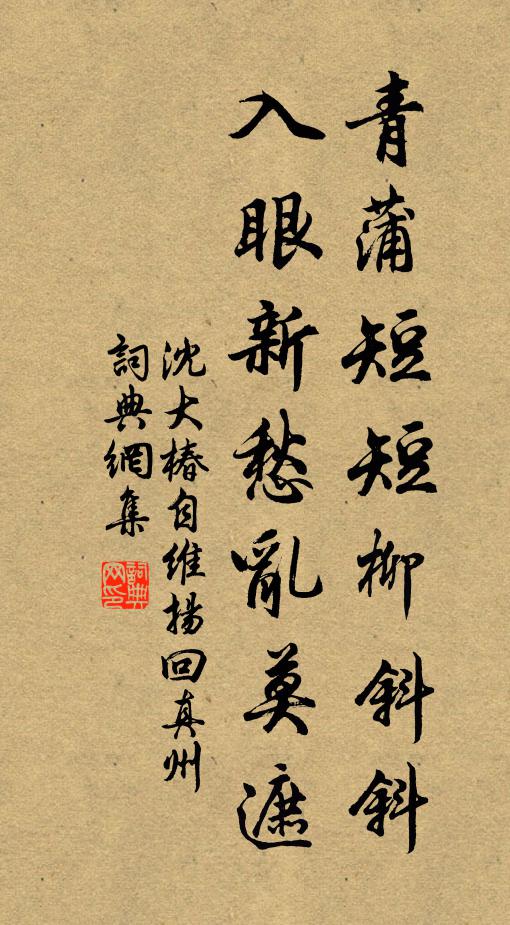 青蒲短短柳斜斜
入眼新愁亂莫遮
沈大椿自維揚回真州
詞典網集
詞典網印